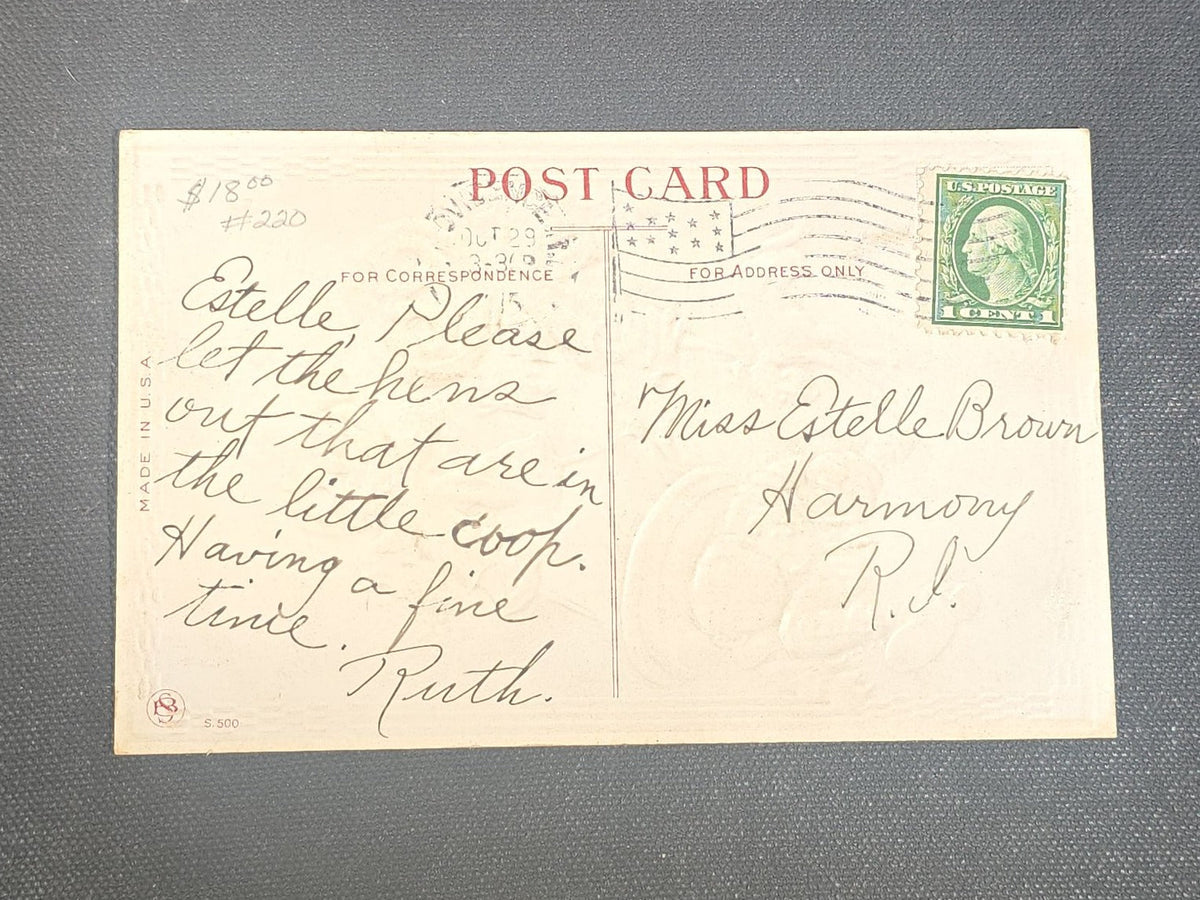 $18.00
#220
POST CARD
OCT 29
15
U.S. POSTAGE
1 CENT 1
FOR CORRESPONDENCE
FOR ADDRESS ONLY
Estelle, Please
let the hens
out that are in
the little coop.
Having a fine
time.
Ruth.
Miss Estelle Brown
Harmony
R.I.
MADE IN U.S.A.
S.500